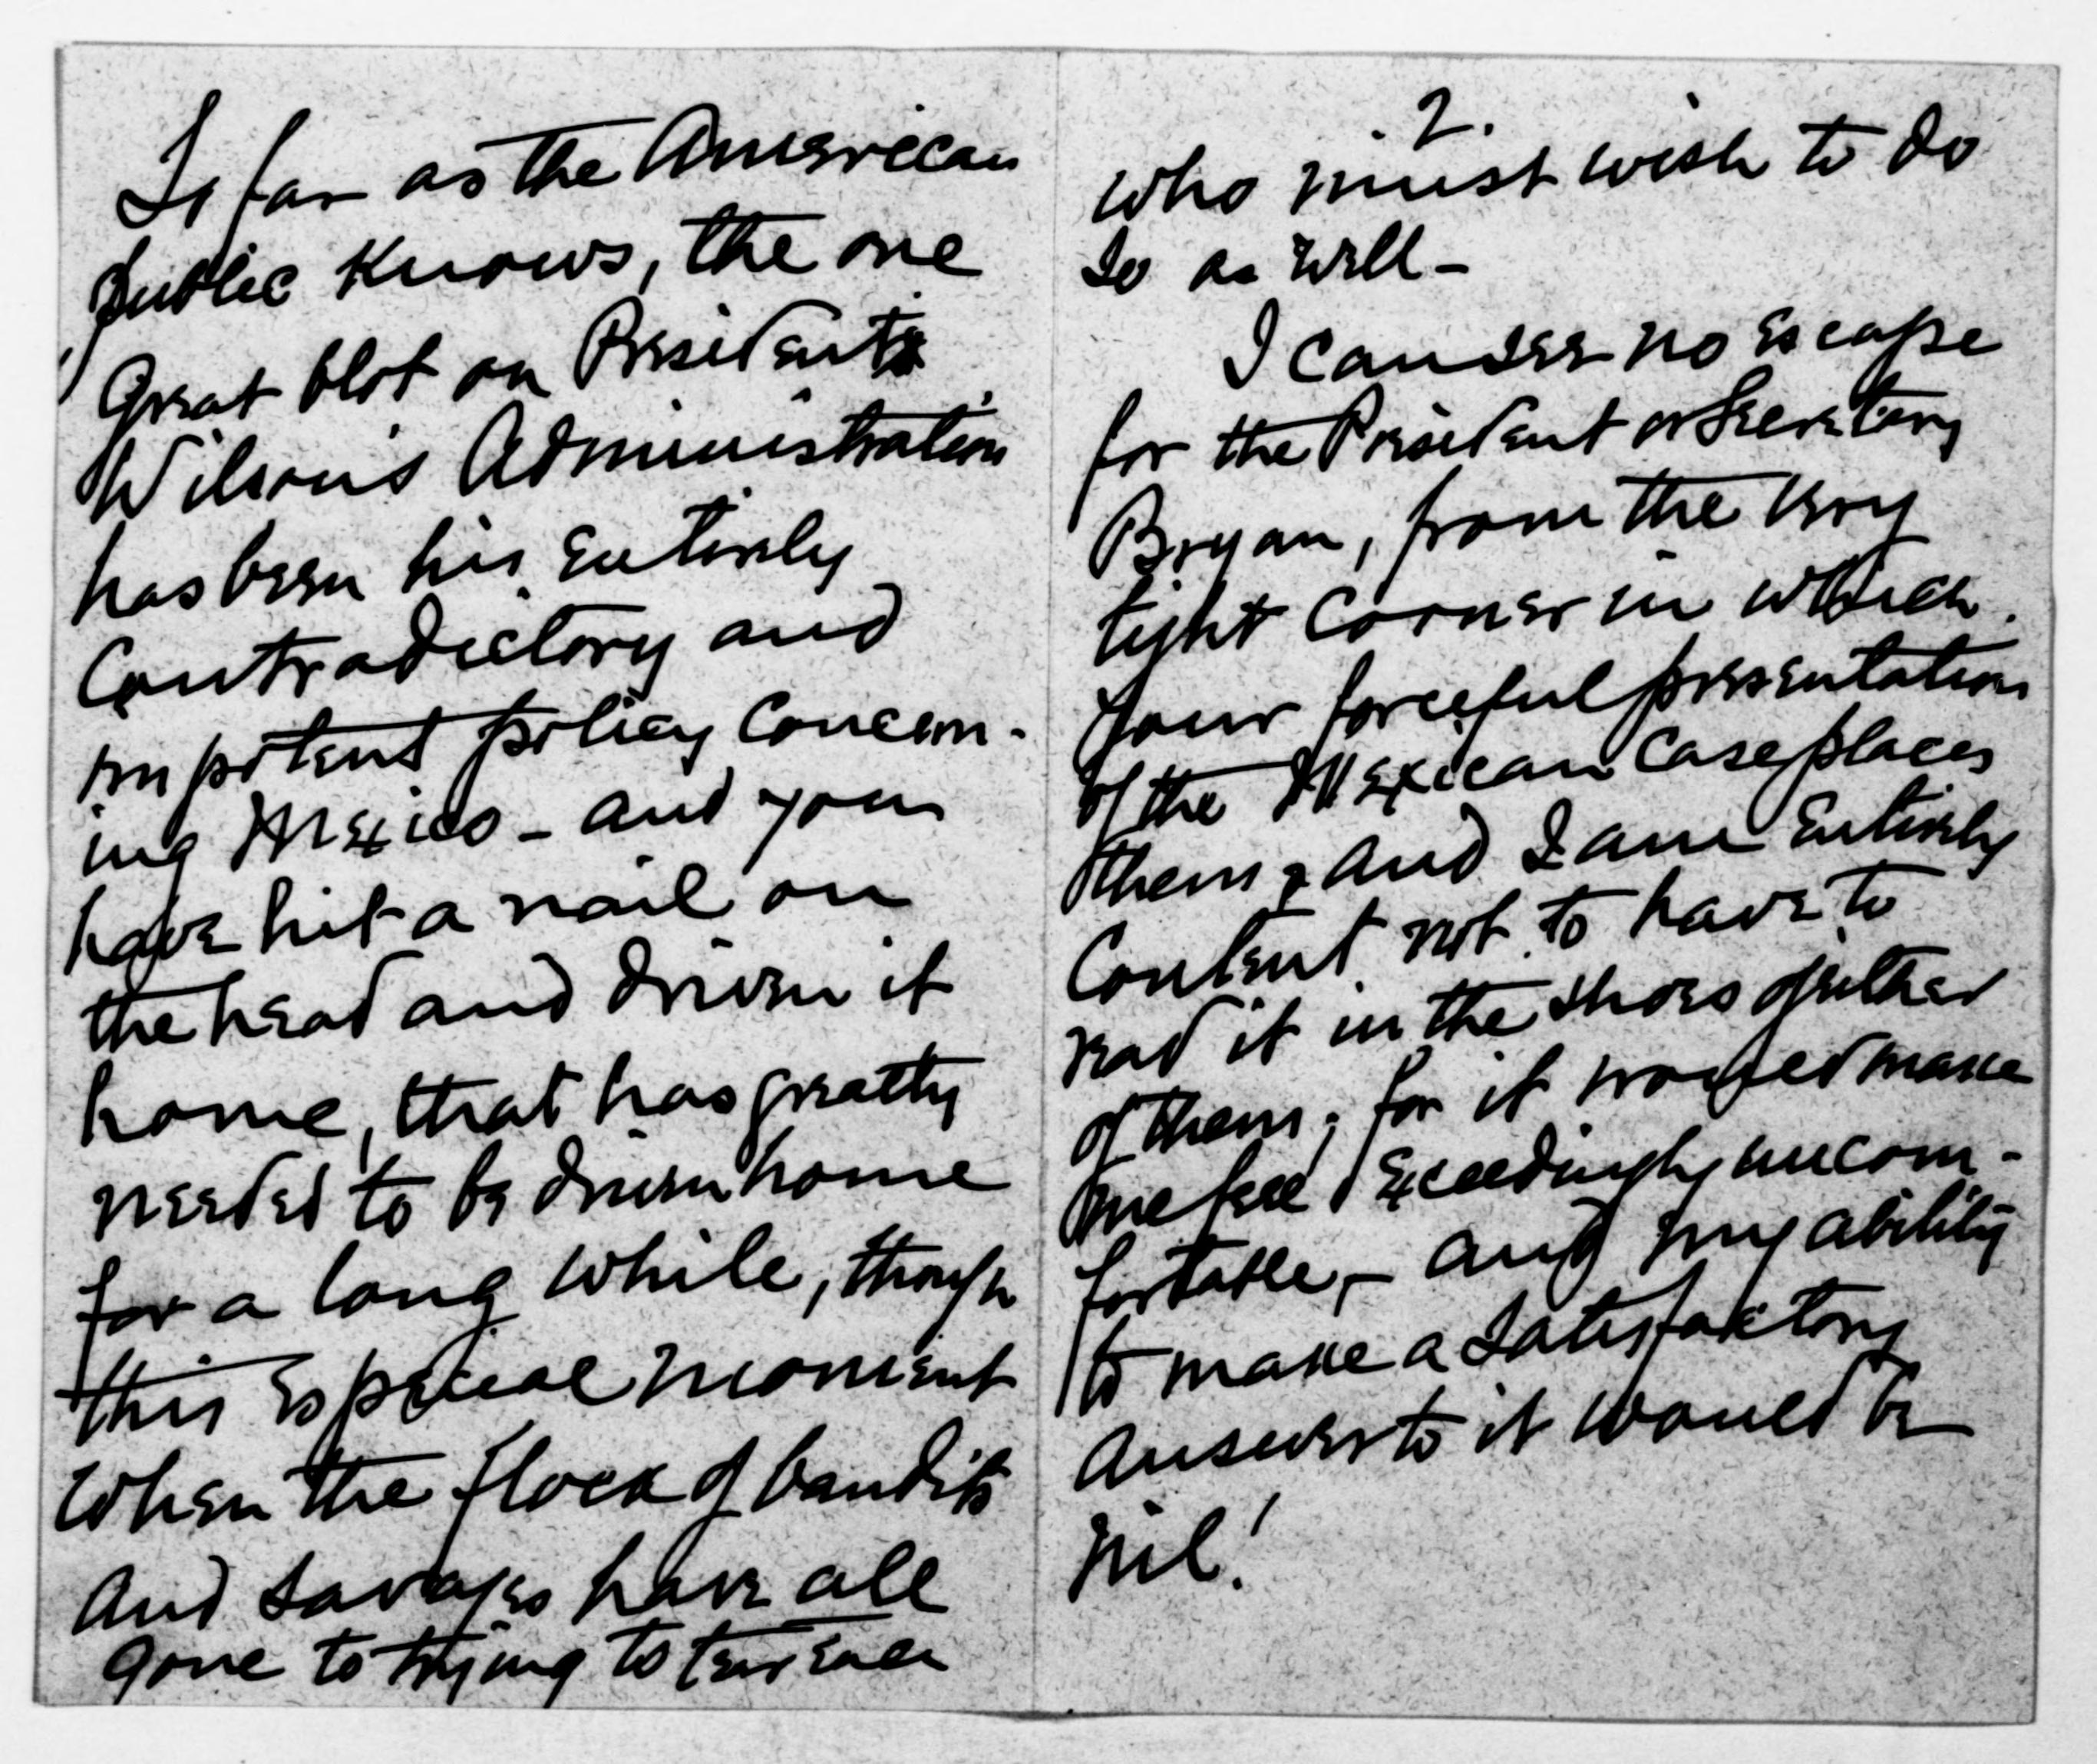 So far as the American
public knows, the one
Great blot on President
Wilson's Administration
has been his entirely
Contradictory and
impotent policy Concern-
ing Mexico - and you
have hit a nail on
the head and driven it
home, that has greatly
needed to be driven home
for a long while, though
this especial moment
when the flock of bandits
and savages have all
gone to trying to tear each
.2.
who must wish to do
so as well -
I can see no escape
for the President or Secretary
Bryan, from the very
tight corner in which
your forceful presentation
of the Mexican Case places
them, and I am entirely
Content not to have to
read it in the shoes of either
of them; for it would make
me feel exceedingly uncom-
fortable, - and my ability
to make a satisfactory
answer to it would be
nil!